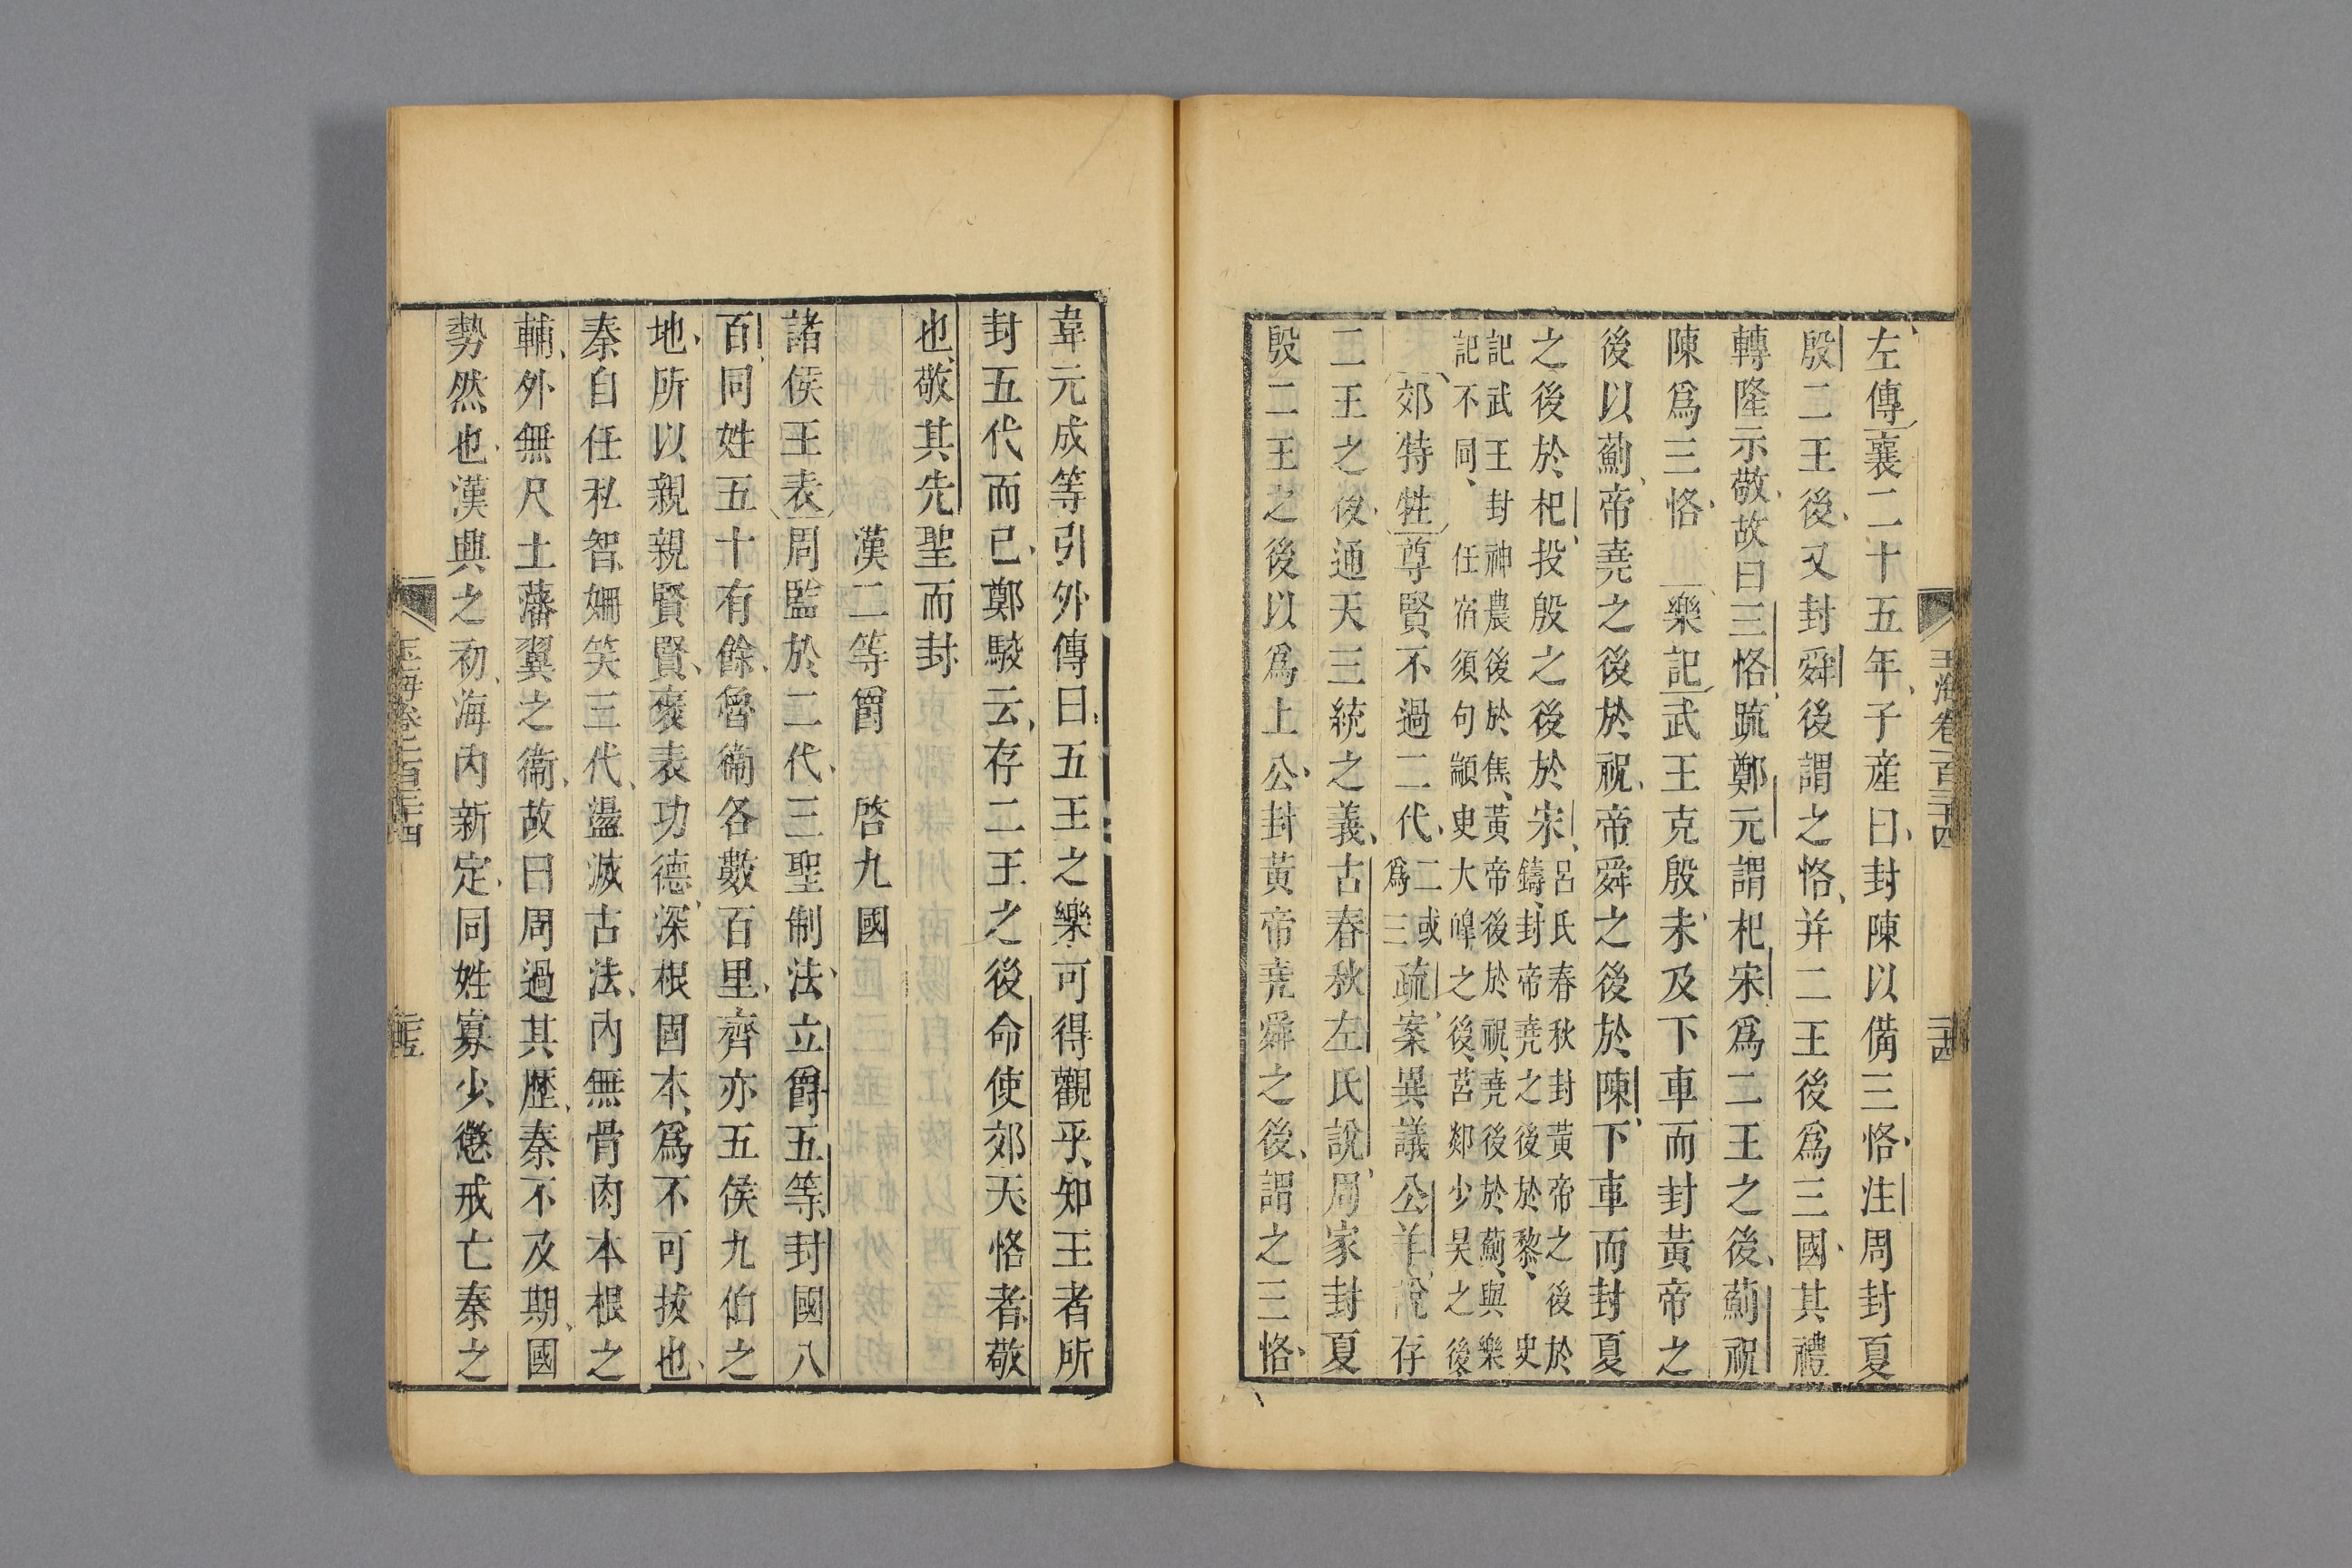 玉海卷一百三十四
二十四
左傳襄二十五年子産曰封陳以備三恪注周封夏
殷二王後又封舜後謂之恪并二王後爲三國其禮
轉隆示敬故曰三恪䟽鄭元謂杞宋爲二王之後薊祝
陳爲三恪 樂記武王克殷未及下車而封黃帝之
後以薊帝堯之後於祝帝舜之後於陳下車而封夏
之後於杞投殷之後於宋呂氏春秋封黃帝之後於
鑄封帝堯之後於黎史
記武王封神農後於焦黃帝後於祝堯後於薊與樂
記不同任宿須句顓臾大皥之後莒郯少昊之後
郊特牲尊賢不過二代二或
爲三疏案異議公羊說存
二王之後通天三統之義古春秋左氏說周家封夏
殷二王之後以爲上公封黃帝堯舜之後謂之三恪
韋元成等引外傳曰五王之樂可得觀乎知王者所
封五代而已鄭駿云存二王之後命使郊天恪者敬
也敬其先聖而封
漢二等爵 啓九國
諸侯王表周監於二代三聖制法立爵五等封國八
百同姓五十有餘魯衞各數百里齊亦五侯九伯之
地所以親親賢賢褒表功德深根固本爲不可拔也
秦自任私智姍笑三代盪滅古法內無骨肉本根之
輔外無尺土藩翼之衞故曰周過其歷秦不及期國
勢然也漢興之初海內新定同姓寡少懲戒亡秦之
玉海卷一百三十四
二十五